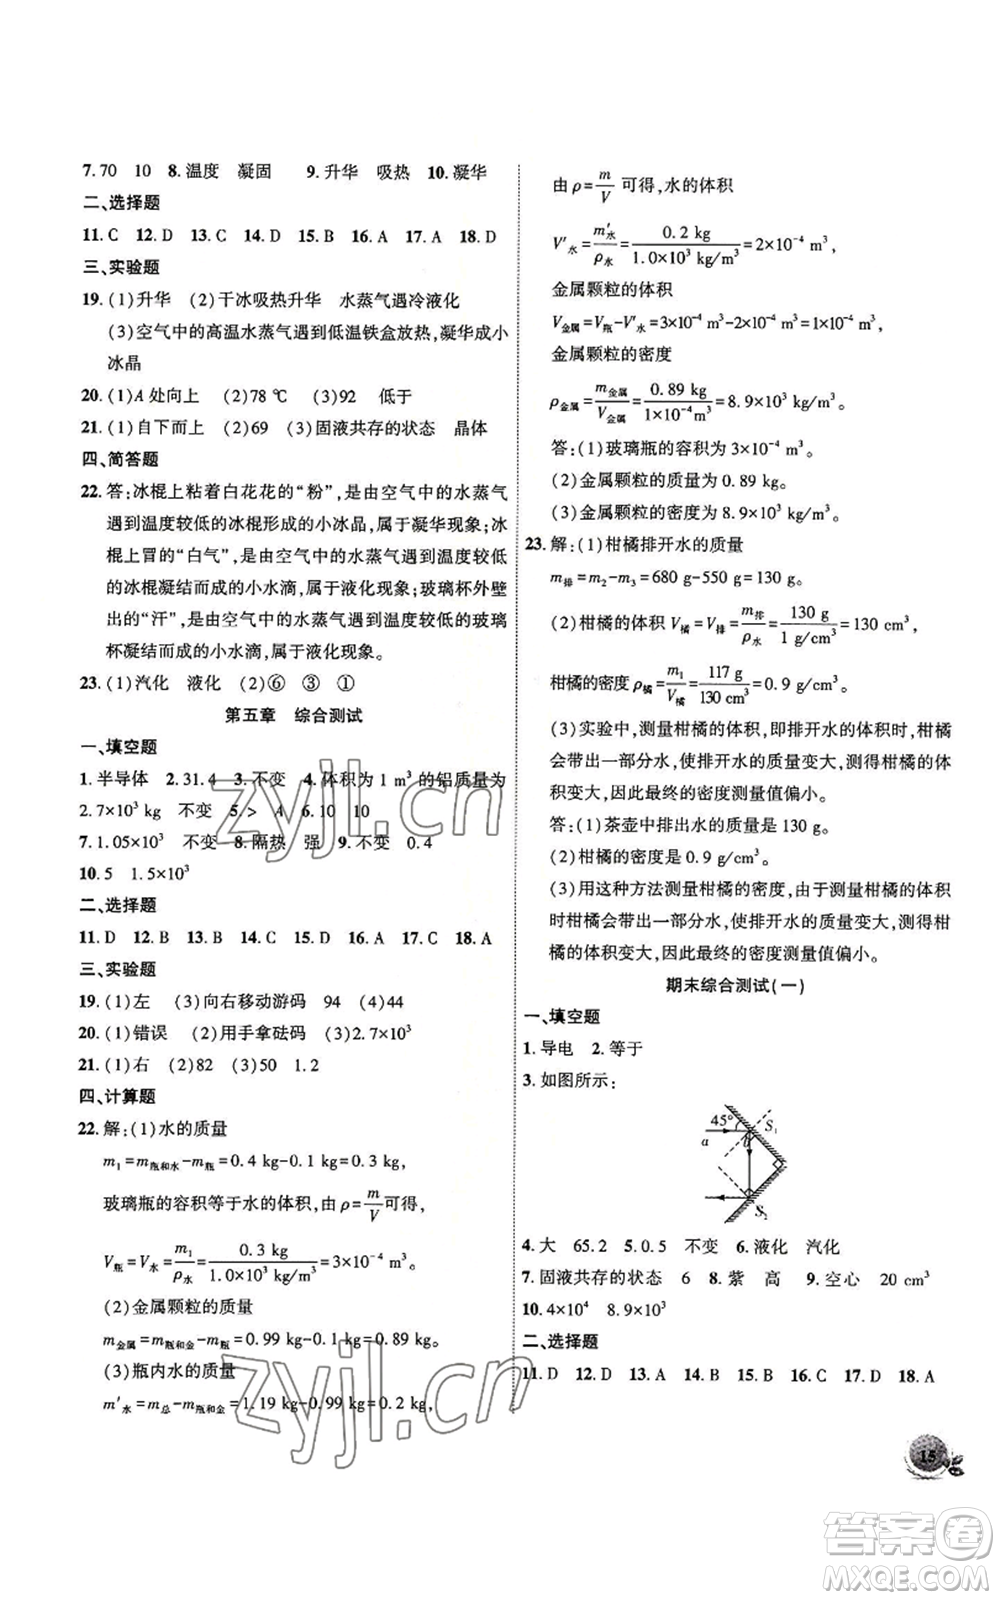 7.70　10　8.温度　凝固　　9.升华　吸热　10.凝华
二、选择题
11.C　12.D　13.C　14.D　15.B　16.A　17.A　18.D
三、实验题
19.(1)升华　(2)干冰吸热升华　水蒸气遇冷液化
(3)空气中的高温水蒸气遇到低温铁盒放热,凝华成小
冰晶
20.(1)A 处向上　(2)78 ℃　(3)92　低于
21.(1)自下而上　(2)69　(3)固液共存的状态　晶体
四、简答题
22.答:冰棍上粘着白花花的“粉”,是由空气中的水蒸气
遇到温度较低的冰棍形成的小冰晶,属于凝华现象;冰
棍上冒的“白气”,是由空气中的水蒸气遇到温度较低
的冰棍凝结而成的小水滴,属于液化现象;玻璃杯外壁
出的“汗”,是由空气中的水蒸气遇到温度较低的玻璃
杯凝结而成的小水滴,属于液化现象。
23.(1)汽化　液化　(2)⑥　③　①
第五章　综合测试
一、填空题
1.半导体　2.31.4　3.不变　4.体积为 1 m³ 的铝质量为
2.7×10³ kg　不变　5.>　A　6.10　10
7.1.05×10³　不变　8.隔热　强　9.不变　0.4
10.5　1.5×10³
二、选择题
11.D　12.B　13.B　14.D　15.D　16.A　17.C　18.A
三、实验题
19.(1)左　(3)向右移动游码　94　(4)44
20.(1)错误　(2)用手拿砝码　(3)2.7×10³
21.(1)右　(2)82　(3)50　1.2
四、计算题
22.解:(1)水的质量
m₁=m瓶和水-m瓶=0.4 kg-0.1 kg=0.3 kg,
玻璃瓶的容积等于水的体积,由 ρ=m/V可得,
V瓶=V水=m₁/ρ水=0.3 kg/1.0×10³ kg/m³=3×10⁻⁴ m³。
(2)金属颗粒的质量
m金属=m瓶和金-m瓶=0.99 kg-0.1 kg=0.89 kg。
(3)瓶内水的质量
m′水=m总-m瓶和金=1.19 kg-0.99 kg=0.2 kg,
由 ρ=m/V 可得,水的体积
V′水=m′水/ρ水=0.2 kg/1.0×10³ kg/m³=2×10⁻⁴ m³,
金属颗粒的体积
V金属=V瓶-V′水=3×10⁻⁴ m³-2×10⁻⁴ m³=1×10⁻⁴ m³,
金属颗粒的密度
ρ金属=m金属/V金属=0.89 kg/1×10⁻⁴ m³=8.9×10³ kg/m³。
答:(1)玻璃瓶的容积为 3×10⁻⁴ m³。
(2)金属颗粒的质量为 0.89 kg。
(3)金属颗粒的密度为 8.9×10³ kg/m³。
23.解:(1)柑橘排开水的质量
m排=m₂-m₃=680 g-550 g=130 g。
(2)柑橘的体积 V橘=V排=m排/ρ水=130 g/1 g/cm³=130 cm³,
柑橘的密度 ρ橘=m₁/V橘=117 g/130 cm³=0.9 g/cm³。
(3)实验中,测量柑橘的体积,即排开水的体积时,柑橘
会带出一部分水,使排开水的质量变大,测得柑橘的体
积变大,因此最终的密度测量值偏小。
答:(1)茶壶中排出水的质量是 130 g。
(2)柑橘的密度是 0.9 g/cm³。
(3)用这种方法测量柑橘的密度,由于测量柑橘的体积
时柑橘会带出一部分水,使排开水的质量变大,测得柑
橘的体积变大,因此最终的密度测量值偏小。
期末综合测试(一)
一、填空题
1.导电　2.等于
3.如图所示:
45°　S₁
a　b
S₂
4.大　65.2　5.0.5　不变　6.液化　汽化
7.固液共存的状态　6　8.紫　高　9.空心　20 cm³
10.4×10⁴　8.9×10³
二、选择题
11.D　12.D　13.A　14.B　15.B　16.C　17.D　18.A
15
zyjl.cn
zyjl.cn
答案圈
MXQE.COM